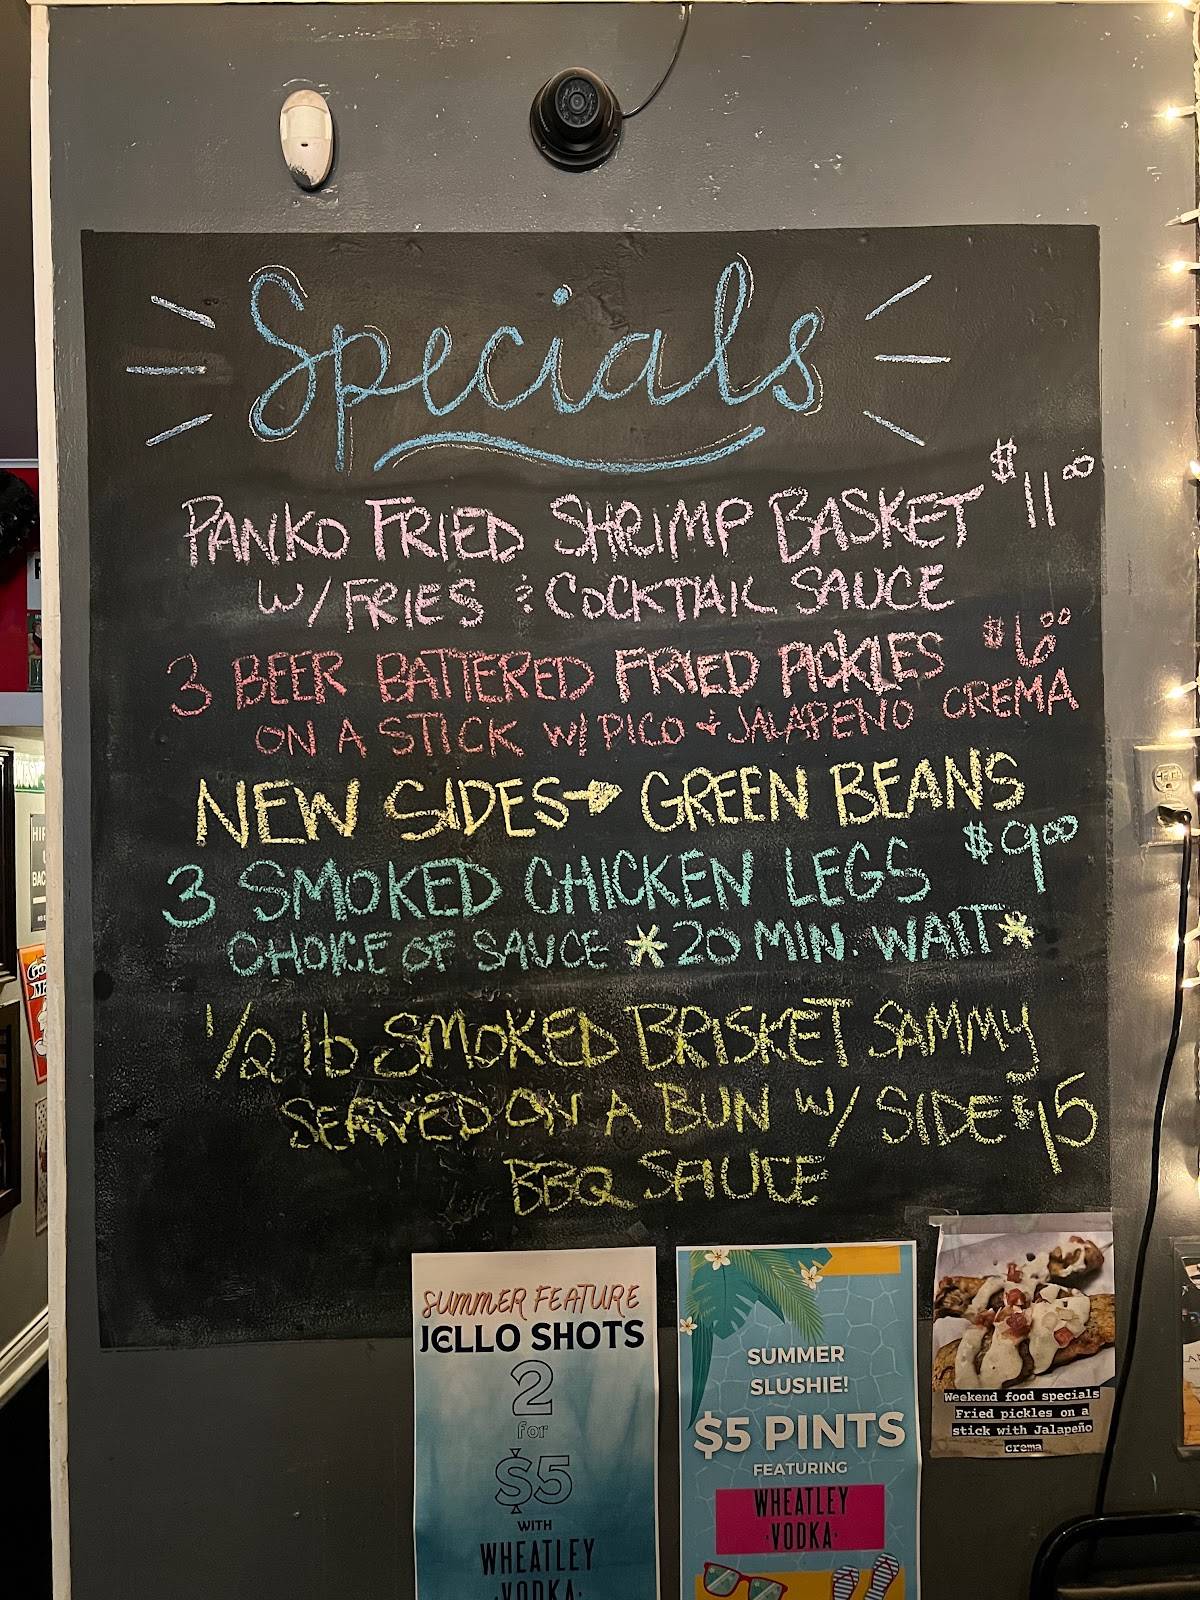 Specials
PANKO FRIED SHRIMP BASKET $11.00
W/ FRIES & COCKTAIL SAUCE
3 BEER BATTERED FRIED PICKLES $6.00
ON A STICK W/ PICO & JALAPENO CREMA
NEW SIDES → GREEN BEANS
3 SMOKED CHICKEN LEGS $9.00
CHOICE OF SAUCE *20 MIN. WAIT*
1/2 lb SMOKED BRISKET SAMMY
SERVED ON A BUN W/ SIDE $15
BBQ SAUCE
SUMMER FEATURE
JELLO SHOTS
2
for
$5
WITH
WHEATLEY
VODKA
SUMMER
SLUSHIE!
$5 PINTS
FEATURING
WHEATLEY
·VODKA·
Weekend food specials
Fried pickles on a
stick with Jalapeño
crema